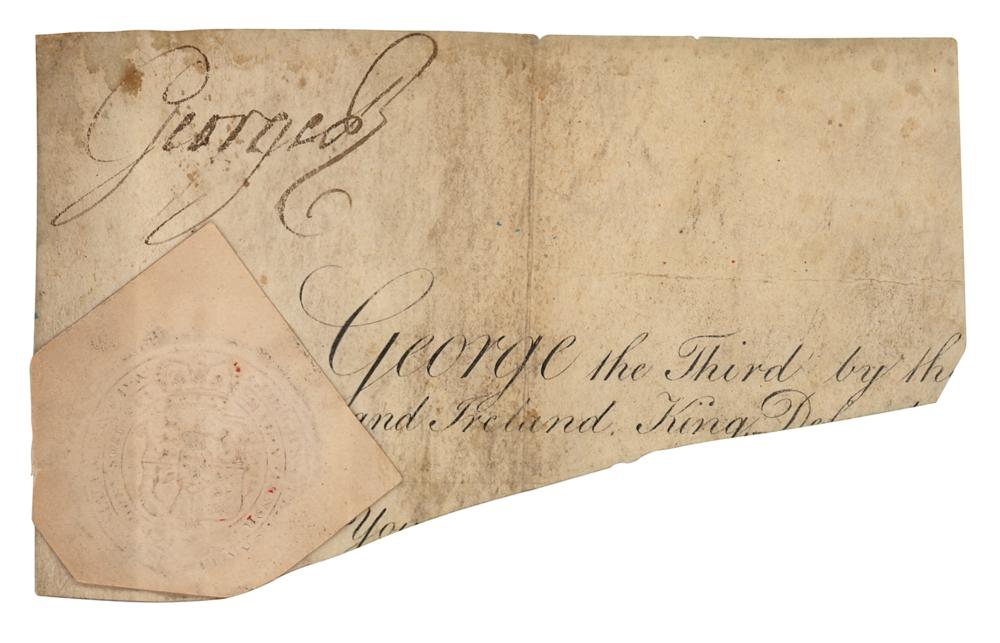 George R
George the Third by th
and Ireland, King, De
You